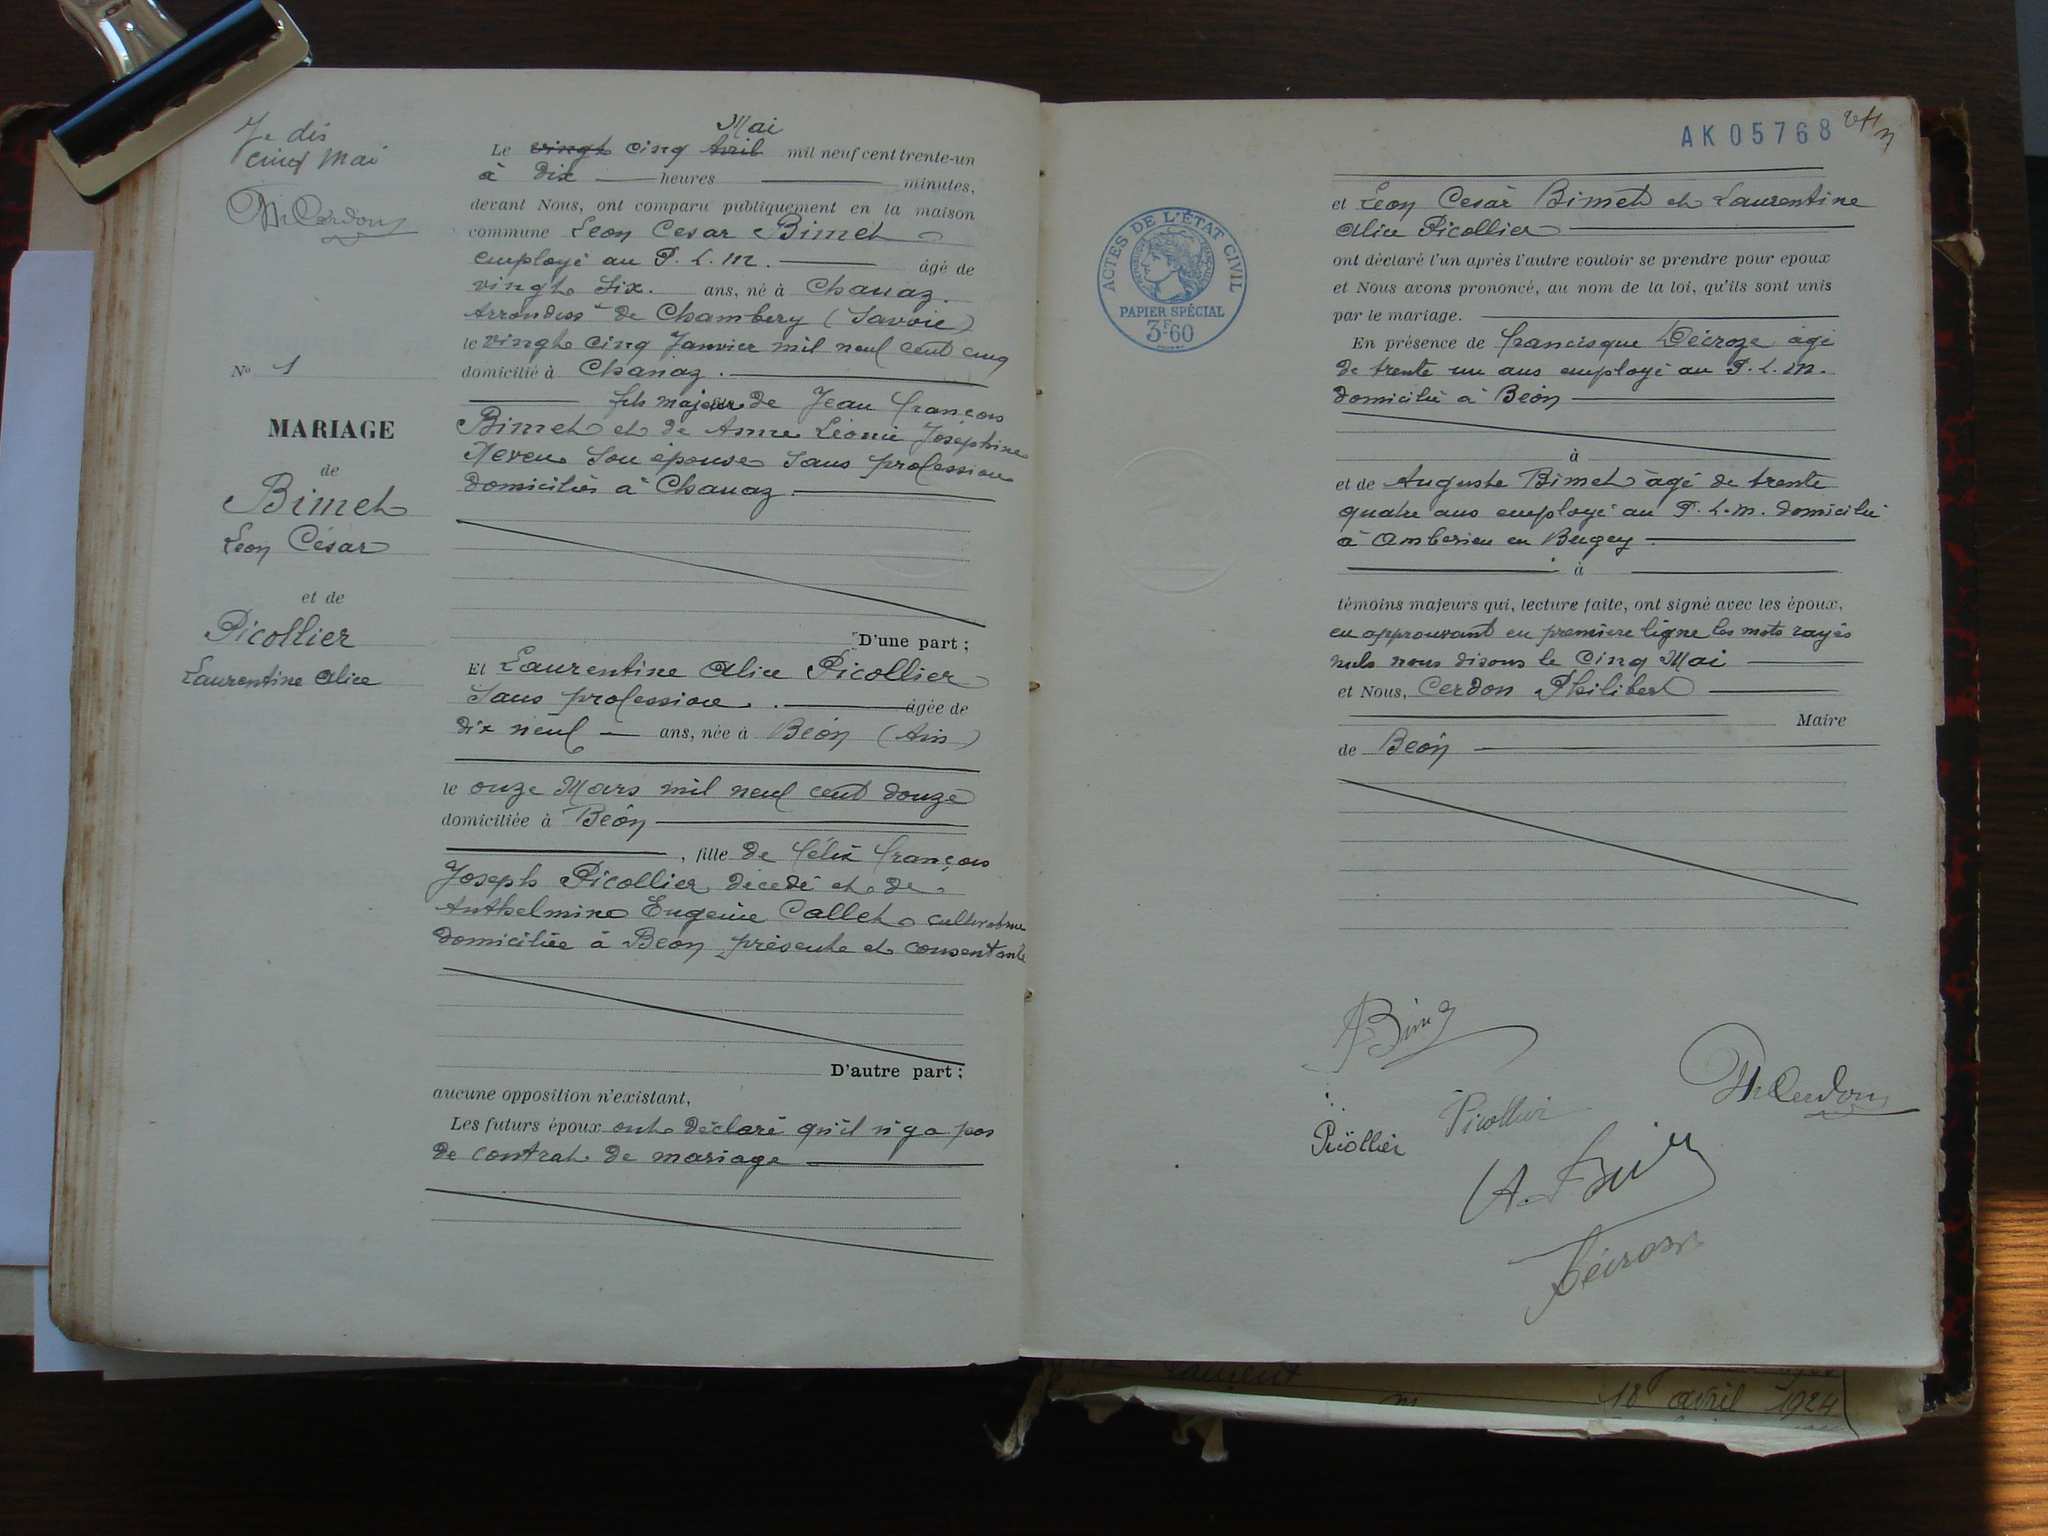 Je dis
cinq Mai
Ph Cerdon
N° 1
MARIAGE
de
Bimet
Leon César
et de
Picollier
Laurentine Alice
Mai
Le vingt cinq Avril mil neuf cent trente-un
à dix heures minutes,
devant Nous, ont comparu publiquement en la maison
commune Leon Cesar Bimet
employé au P. L. M. âgé de
vingt six. ans, né à Chanaz.
Arrondisst de Chambery (Savoie)
le vingt cinq Janvier mil neuf cent cinq
domicilié à Chanaz.
fils majeur de Jean François
Bimet et de Anne Léonie Joséphine
Neveu son épouse sans profession
domiciliés à Chanaz
D'une part ;
Et Laurentine Alice Picollier
Sans profession. âgée de
dix neuf ans, née à Béon (Ain)
le onze Mars mil neuf cent douze
domiciliée à Béon
, fille de Félix François
Joseph Picollier décédé et de
Anthelmine Eugenie Callet cultivatrice
domiciliée à Béon présente et consentante
D'autre part ;
aucune opposition n'existant,
Les futurs époux ont déclaré qu'il n'y a pas
de contrat de mariage
AK 05768
ACTES DE L'ÉTAT CIVIL
PAPIER SPÉCIAL
3F60
et Léon Cesar Bimet et Laurentine
Alice Picollier
ont déclaré l'un après l'autre vouloir se prendre pour epoux
et Nous avons prononcé, au nom de la loi, qu'ils sont unis
par le mariage.
En présence de Francisque Décroze âgé
de trente un ans employé au P. L. M.
domicilié à Béon
à
et de Auguste Bimet âgé de trente
quatre ans employé au P. L. M. domicilié
à Amberieu en Bugey
à
témoins majeurs qui, lecture faite, ont signé avec les époux,
en approuvant en première ligne les mots rayés
nuls nous disons le Cinq Mai
et Nous, Cerdon Philibert
Maire
de Béon
Bimet
Ph Cerdon
Picollier
Picollier
A. Bimet
Décroze
Laurent
18 avril 1924